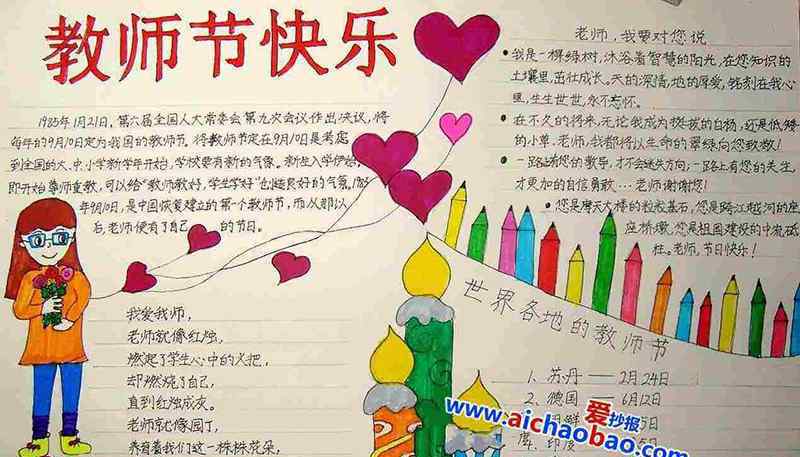 教师节快乐
1985年1月21日,第六届全国人大常委会第九次会议作出决议,将
每年的9月10定为我国的教师节。将教师节定在9月10日是考虑
到全国的大、中、小学新学年开始,学校要有新的气象。新生入学伊始,
即开始尊师重教,可以给"教师教好,学生学好"创造良好的气氛。1985
年9月10日,是中国恢复建立的第一个教师节,而从那以
后老师便有了自己的节日。
我爱我师,
老师就像红烛,
燃起了学生心中的火把,
却燃烧了自己,
直到红烛成灰。
老师就像园丁,
养育着我们这一株株花朵,
老师,我要对您说
我是一棵绿树,沐浴着智慧的阳光,在您知识的
土壤里,茁壮成长。天的深情,地的厚爱,铭刻在我心
里,生生世世,永不忘怀。
在不久的将来,无论我成为挺拔的白杨,还是低矮
的小草,老师,我都将以生命的翠绿向您致敬!
一路有您的教导,才不会迷失方向;一路上有您的关注,
才更加的自信勇敢……老师谢谢您!
您是摩天大楼的粒粒基石,您是跨江越河的座
座桥墩,您是祖国建设的中流砥
柱。老师,节日快乐!
世界各地的教师节
1、苏丹——2月24日
2、德国——6月12日
鲜 5日
印度 5日
www.aichaobao.com
爱抄报